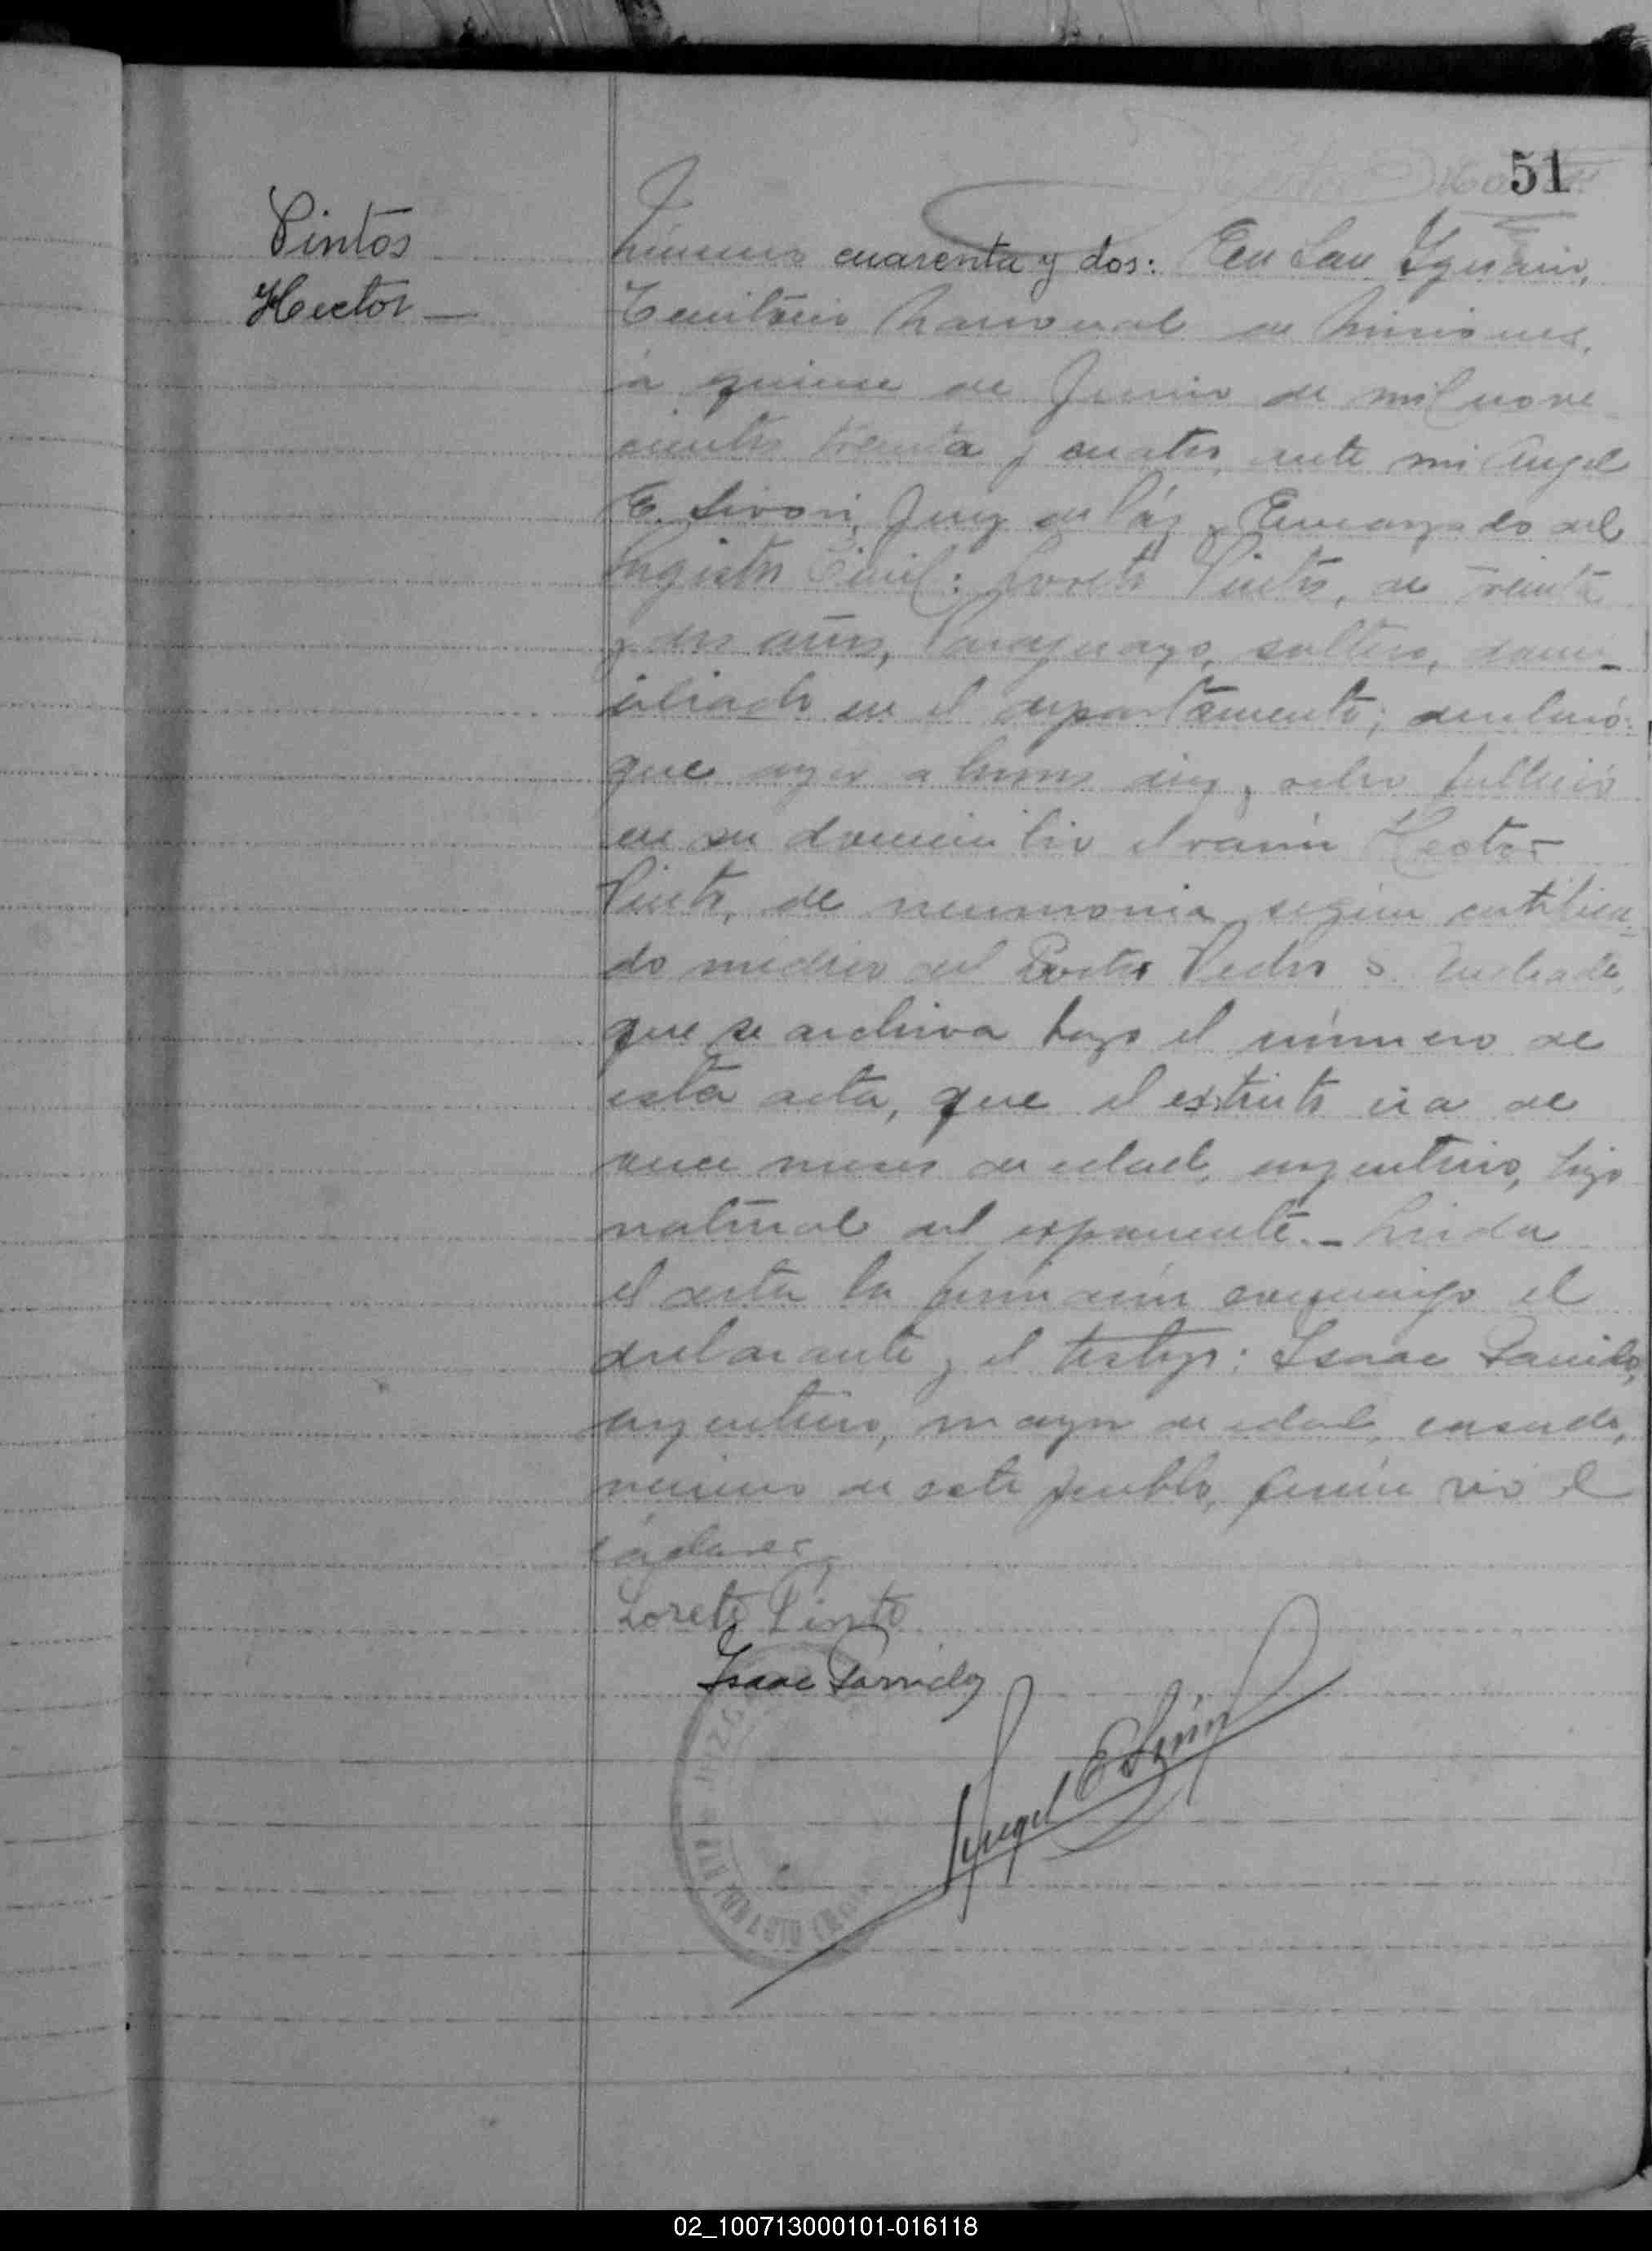 51
Pintos
Hector
Número cuarenta y dos: En San Ignacio,
Territorio Nacional de Misiones,
á quince de Junio de mil nove
cientos treinta y cuatro, ante mi Angel
E. Sivori, Juez de Páz y Encargado del
Registro Civil: Loreto Pinto, de treinta
y dos años, Paraguayo, soltero, domi-
ciliado en el departamento; declaró:
que ayer a horas diez y ocho falleció
en su domicilio el varón Hector
Pinto, de neumonia según certifica-
do médico del Doctor Pedro S. Andrade,
que se archiva bajo el número de
esta acta, que el extinto era de
once meses de edad, argentino, hijo
natural del exponente._ Leida
el acta la firmaron conmigo el
declarante y el testigo: Isaac
argentino, mayor de edad, casado,
vecino de este pueblo, quien vió el
cádaver
Loreto Pinto
Isaac
Angel E Sivori
02_100713000101-016118